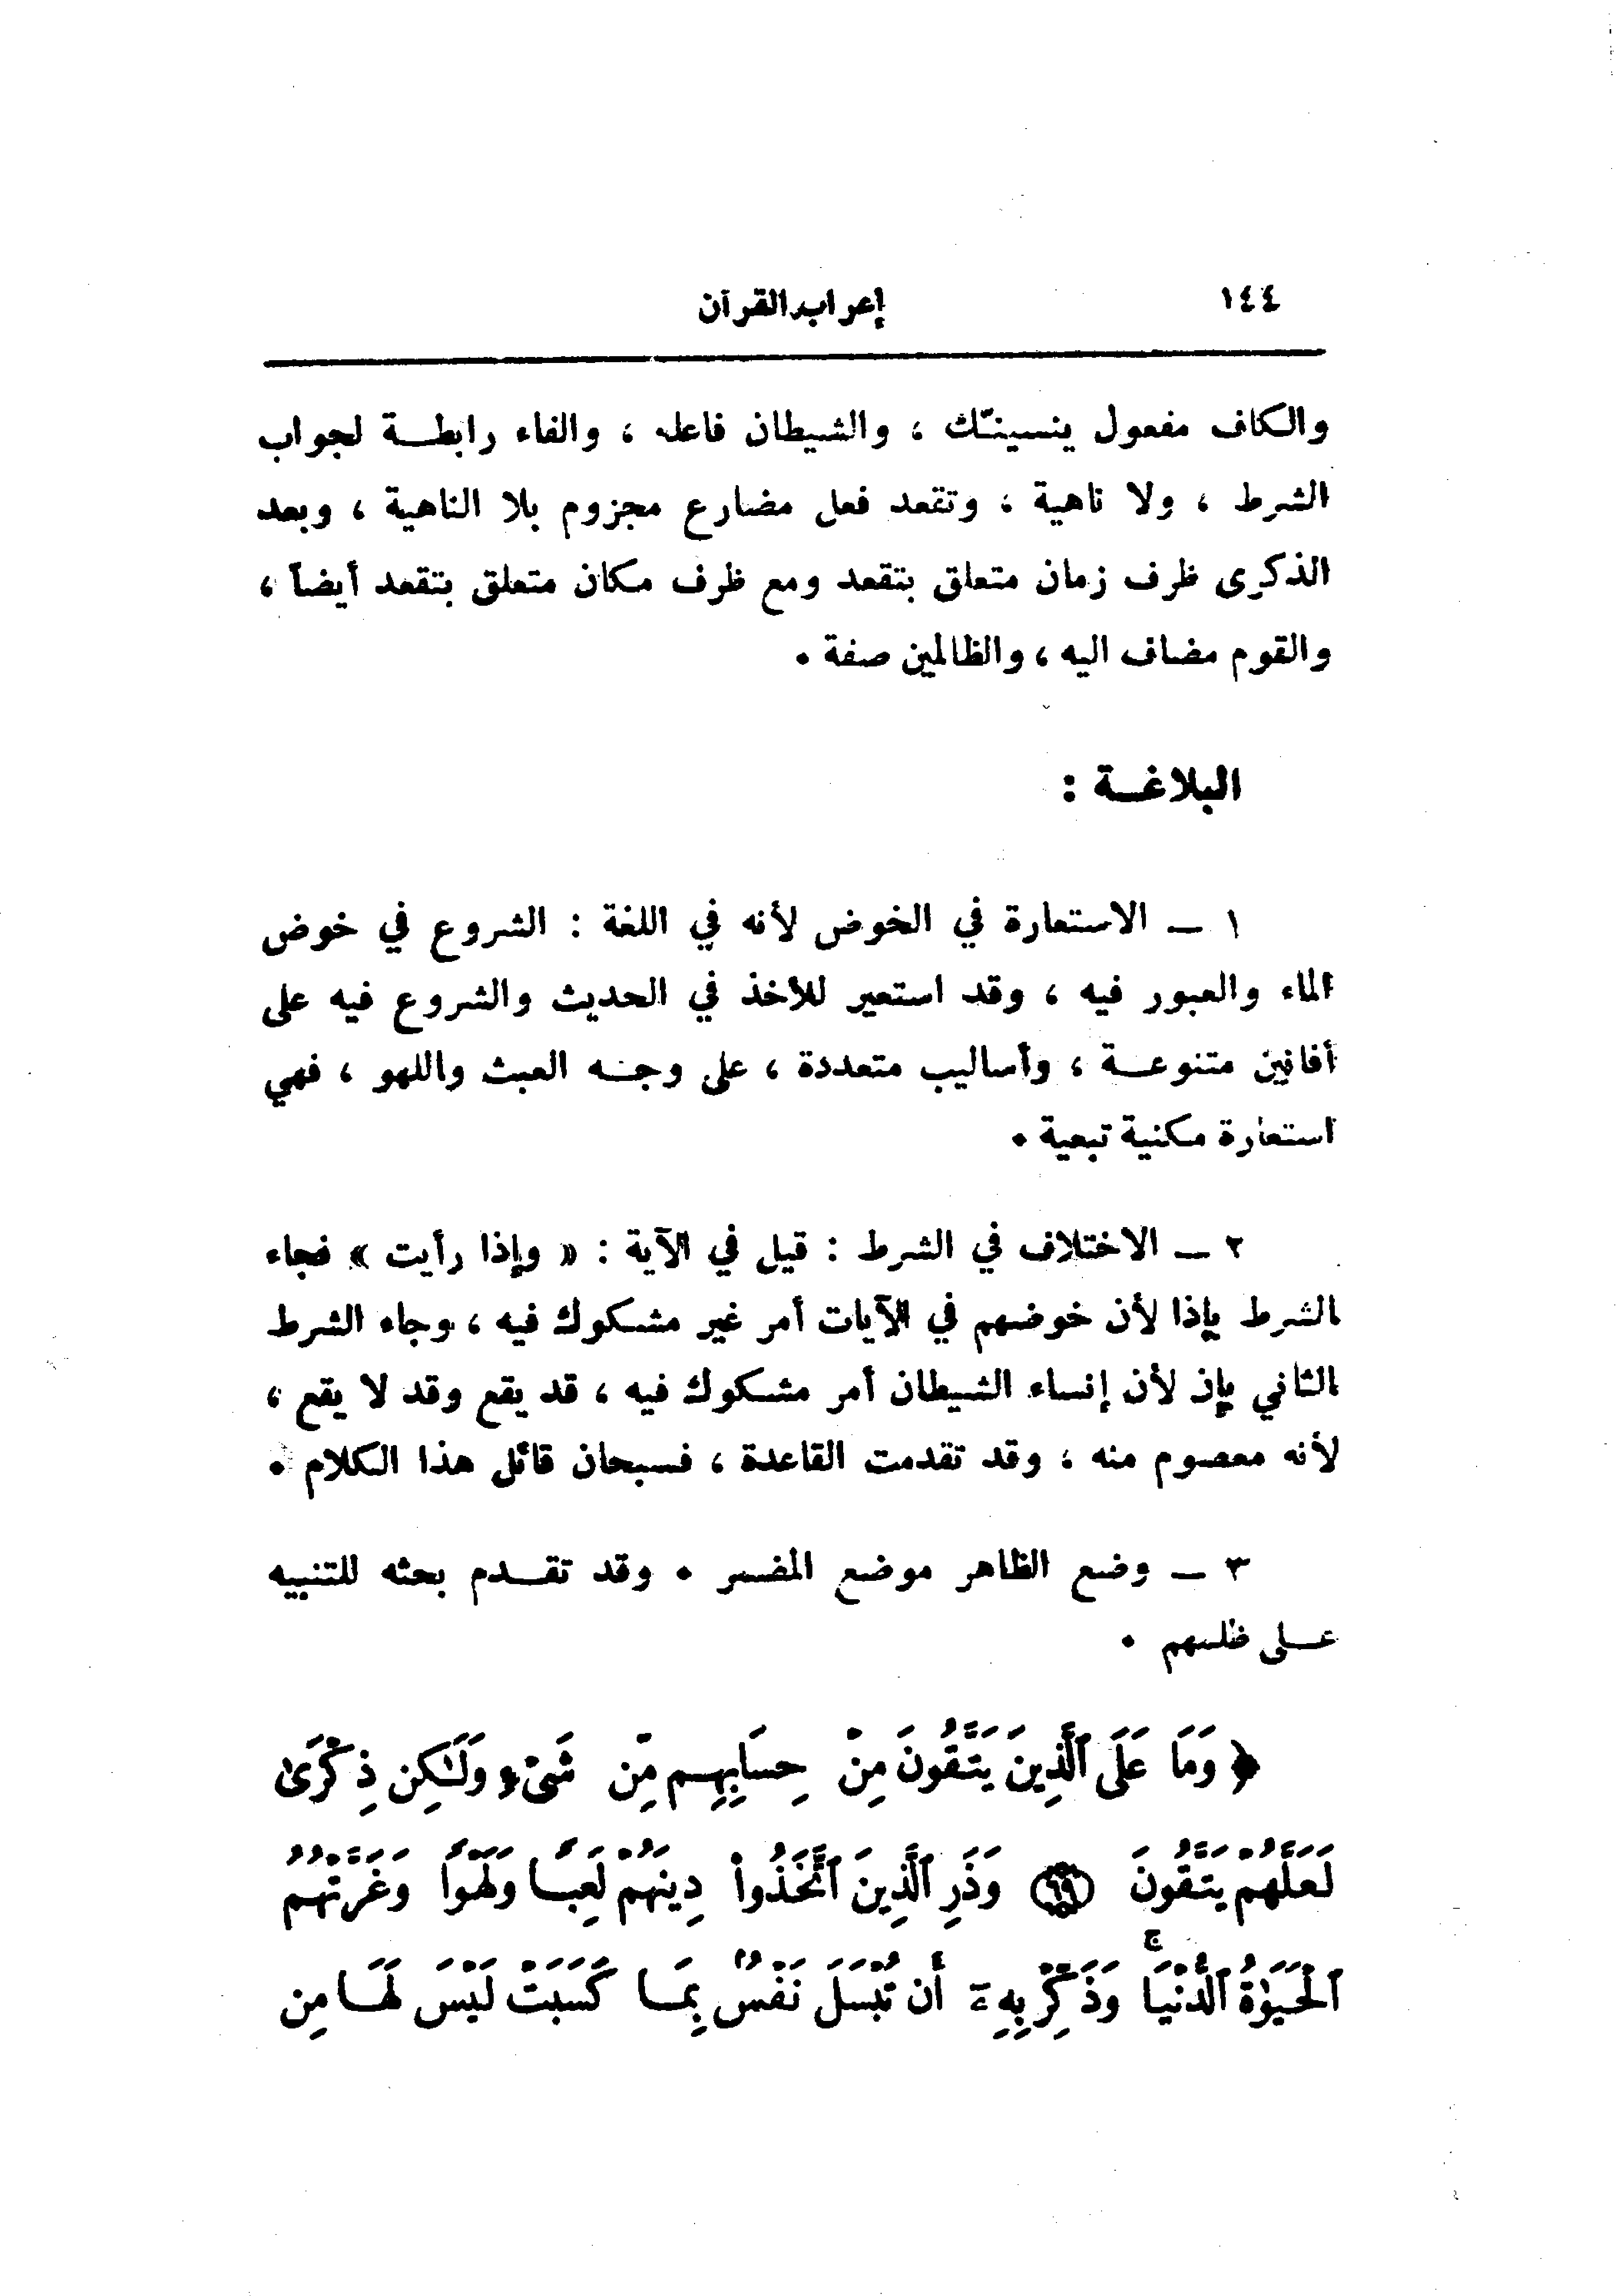 ١٤٤ إعراب القرآن
والكاف مفعول ينسينّك ، والشيطان فاعله ، والفاء رابطة لجواب
الشرط ، ولا ناهية ، وتقعد فعل مضارع مجزوم بلا الناهية ، وبعد
الذكرى ظرف زمان متعلق بتقعد ومع ظرف مكان متعلق بتقعد أيضاً ،
والقوم مضاف اليه ، والظالمين صفة .
البلاغة :
١ – الاستعارة في الخوض لأنه في اللغة : الشروع في خوض
الماء والعبور فيه ، وقد استعير للأخذ في الحديث والشروع فيه على
أفانين متنوعة ، وأساليب متعددة ، على وجه العبث واللهو ، فهي
استعارة مكنية تبعية .
٢ – الاختلاف في الشرط : قيل في الآية : « وإذا رأيت » فجاء
الشرط بإذا لأن خوضهم في الآيات أمر غير مشكوك فيه ، وجاء الشرط
الثاني بإن لأن إنساء الشيطان أمر مشكوك فيه ، قد يقع وقد لا يقع ،
لأنه معصوم منه ، وقد تقدمت القاعدة ، فسبحان قائل هذا الكلام .
٣ – وضع الظاهر موضع المضمر . وقد تقدم بحثه للتنبيه
على ظلمهم .
﴿ وَمَا عَلَى ٱلَّذِينَ يَتَّقُونَ مِنْ حِسَابِهِم مِّن شَىْءٍ وَلَـٰكِن ذِكْرَىٰ
لَعَلَّهُمْ يَتَّقُونَ ٦٩ وَذَرِ ٱلَّذِينَ ٱتَّخَذُوا۟ دِينَهُمْ لَعِبًا وَلَهْوًا وَغَرَّتْهُمُ
ٱلْحَيَوٰةُ ٱلدُّنْيَا ۚ وَذَكِّرْ بِهِۦٓ أَن تُبْسَلَ نَفْسٌۢ بِمَا كَسَبَتْ لَيْسَ لَهَا مِن